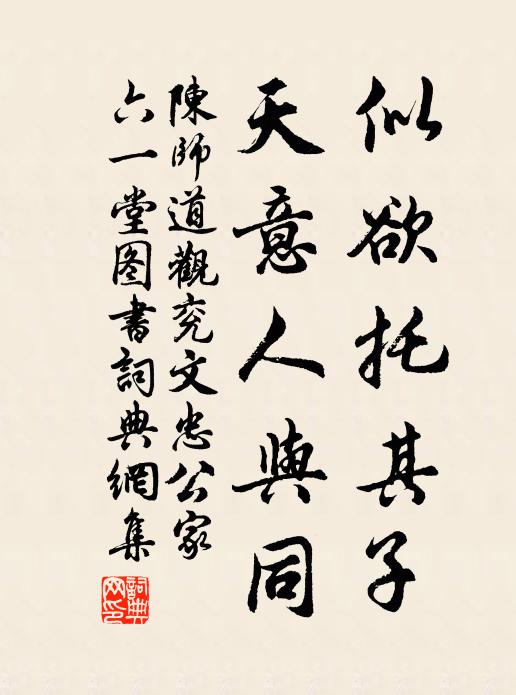 似欲托其子
天意人與同
陳師道觀兖文忠公家
六一堂图書詞典網集
詞典網印